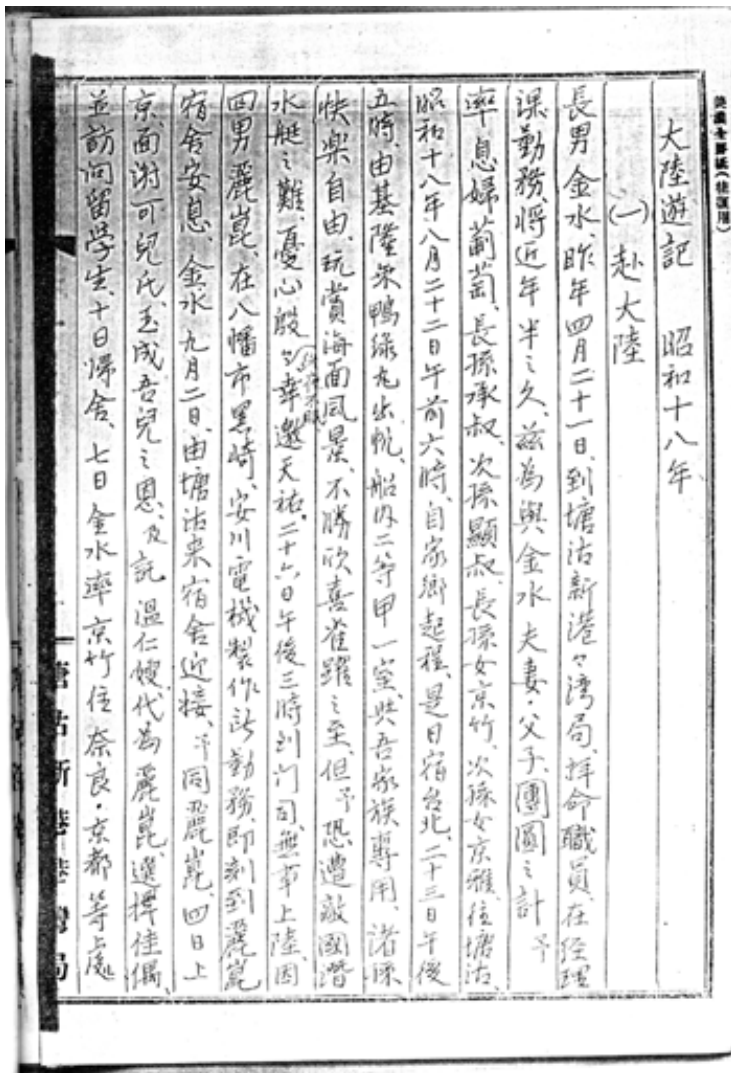 大陸遊記　昭和十八年
㈠赴大陸
長男金水、昨年四月二十一日、到塘沽新港々湾局、拝命職員、在経理
課勤務、将近年半之久、茲為與金水夫妻・父子、團圓之計、予
率息婦葡萄、長孫承叔、次孫顯叔、長孫女京竹、次孫女京雅、往塘沽、
昭和十八年八月二十二日午前六時、自家鄉起程、是日宿台北、二十三日午後
五時、由基隆乗鴨綠丸出帆、船内二等甲一室、與吾家族專用、諸孫
快楽自由、玩賞海面風景、不勝欣喜雀躍之至、但予恐遭敵國潜
水艇之難、憂心殷々、幸邀天祐、二十六日午後三時到门司、無事上陸、因
四男麗崑、在八幡市黒崎、安川電機製作所勤務、即刻到麗崑
宿舎安息、金水九月二日、由塘沽来宿舎迎接、予同麗崑、四日上
京面谢可兒氏、玉成吾兒之恩、及託温仁嫂代為麗崑、選擇佳偶、
並訪问留学生、十日帰舎、七日金水率京竹往奈良・京都等處
塘沽新港港灣局